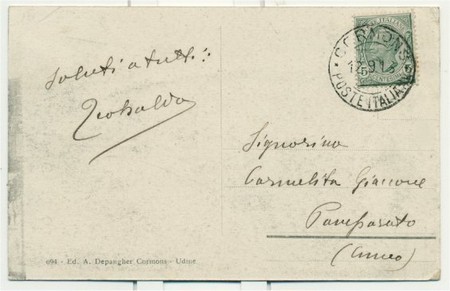 Saluti a tutti
Teobaldo
CORMONS
POSTE ITALIANE
Signorina
Carmelita Giacone
Pamparato
(Cuneo)
694 - Ed. A. Depangher Cormons - Udine